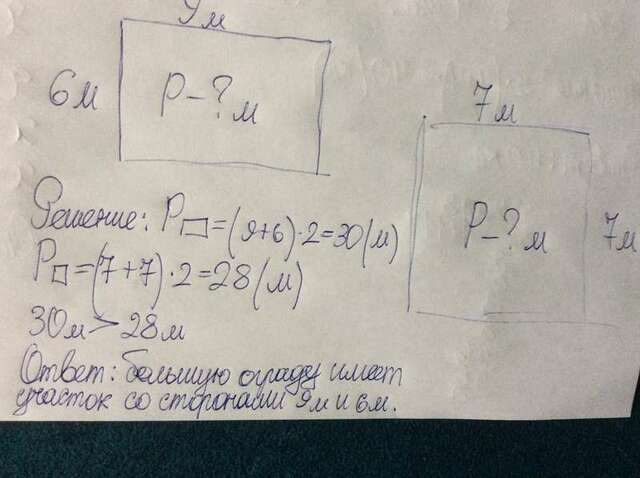 9 м
6 м
P-? м
7 м
7 м
P-? м
Решение: P▭=(9+6)·2=30(м)
P□=(7+7)·2=28(м)
30м > 28м
Ответ: большую ограду имеет
участок со сторонами 9м и 6м.